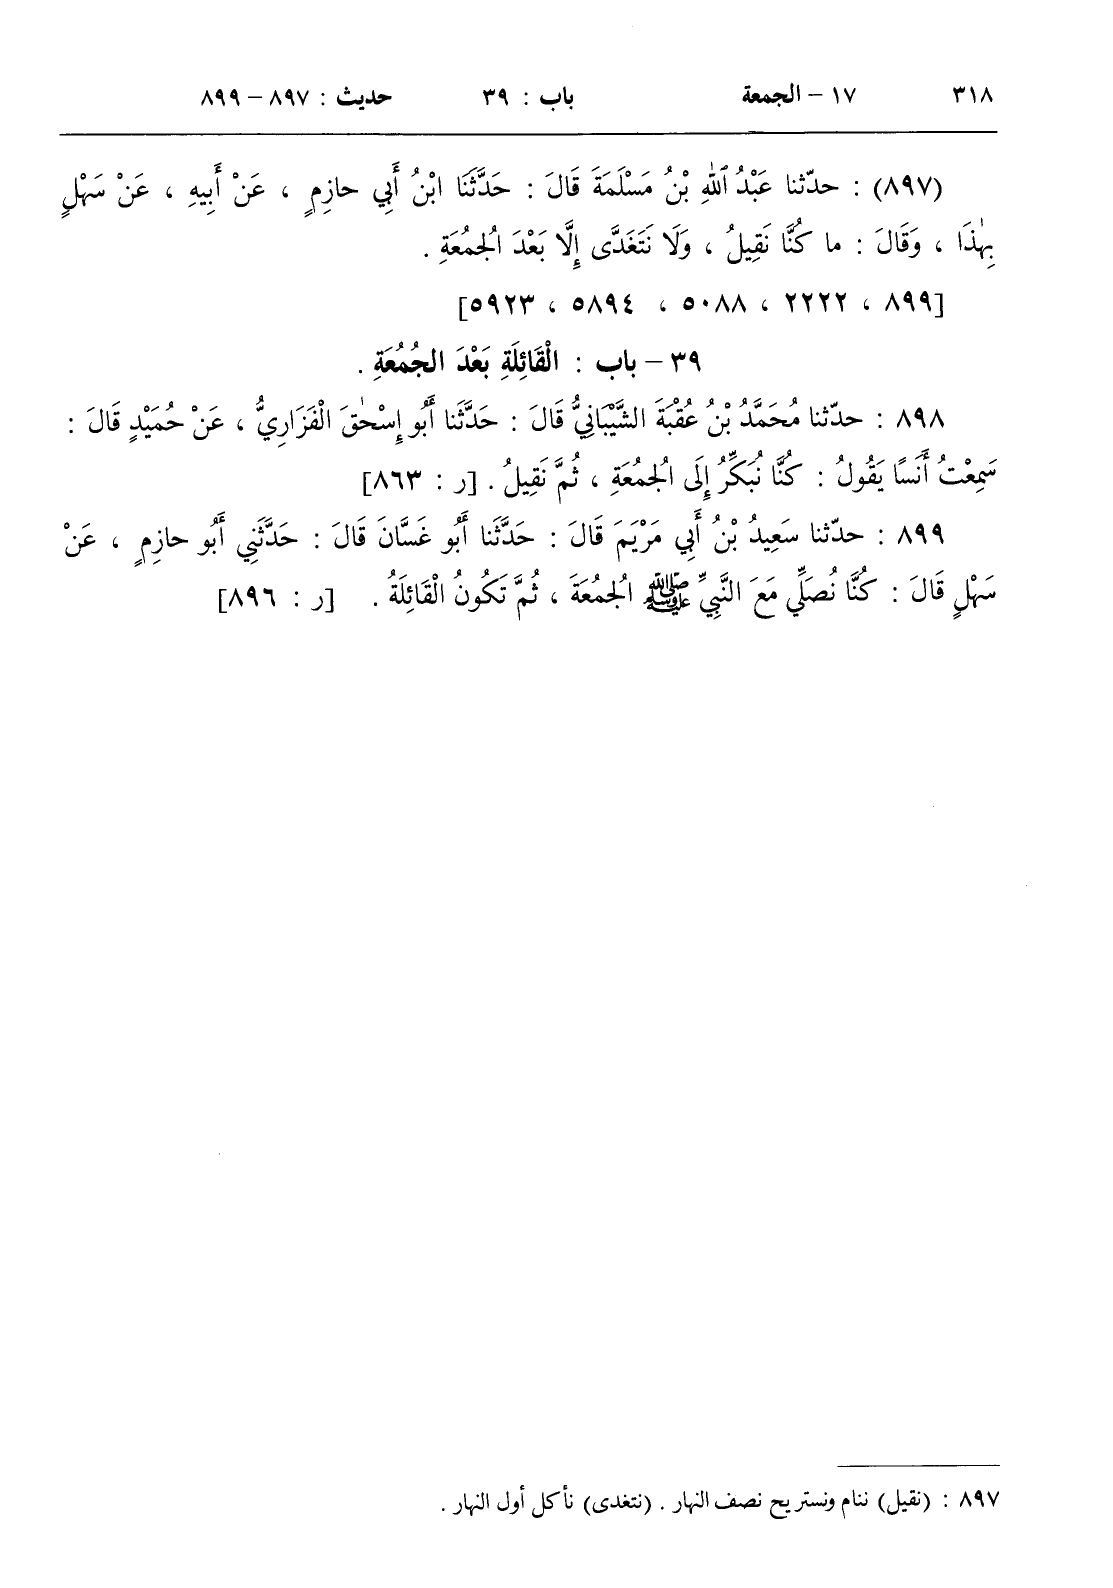 ٣١٨ ١٧ – الجمعة باب : ٣٩ حديث : ٨٩٧ – ٨٩٩
(٨٩٧) : حدّثنا عَبْدُ ٱللهِ بْنُ مَسْلَمَةَ قَالَ : حَدَّثَنَا ابْنُ أَبِي حازِمٍ ، عَنْ أَبِيهِ ، عَنْ سَهْلٍ
بِهٰذَا ، وَقَالَ : ما كُنَّا نَقِيلُ ، وَلَا نَتَغَدَّى إِلَّا بَعْدَ الْجُمُعَةِ .
[٨٩٩ ، ٢٢٢٢ ، ٥٠٨٨ ، ٥٨٩٤ ، ٥٩٢٣]
٣٩ – باب : الْقَائِلَةِ بَعْدَ الْجُمُعَةِ .
٨٩٨ : حدّثنا مُحَمَّدُ بْنُ عُقْبَةَ الشَّيْبَانِيُّ قَالَ : حَدَّثَنَا أَبُو إِسْحٰقَ الْفَزَارِيُّ ، عَنْ حُمَيْدٍ قَالَ :
سَمِعْتُ أَنَسًا يَقُولُ : كُنَّا نُبَكِّرُ إِلَى الْجُمُعَةِ ، ثُمَّ نَقِيلُ . [ر : ٨٦٣]
٨٩٩ : حدّثنا سَعِيدُ بْنُ أَبِي مَرْيَمَ قَالَ : حَدَّثَنَا أَبُو غَسَّانَ قَالَ : حَدَّثَنِي أَبُو حازِمٍ ، عَنْ
سَهْلٍ قَالَ : كُنَّا نُصَلِّي مَعَ النَّبِيِّ ﷺ الْجُمُعَةَ ، ثُمَّ تَكُونُ الْقَائِلَةُ . [ر : ٨٩٦]
٨٩٧ : (نقيل) ننام ونستريح نصف النهار . (نتغدى) نأكل أول النهار .